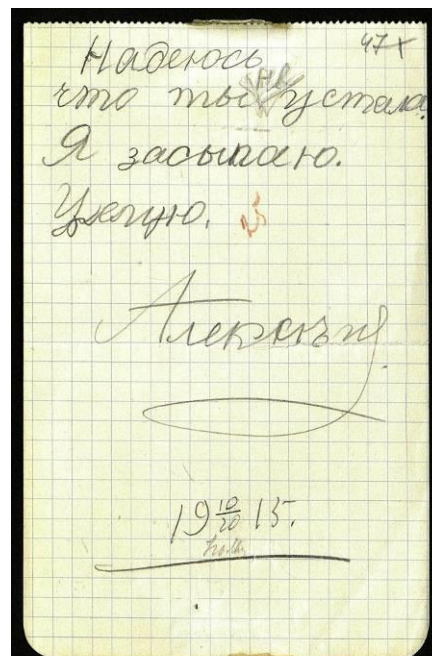 47+
Надеюсь
что ты не устала.
Я засыпаю.
Целую.
25
Алексѣй
19 10/20 15.